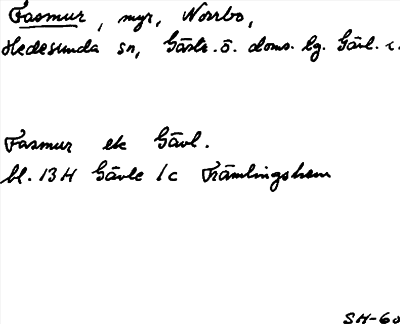 Fasmur, myr, Norrbo,
Hedesunda sn, Gästr. ö. doms. hg. Gävl. l.
Fasmur ek Gävl.
bl. 13H Gävle 1c Främlingshem
SH-60